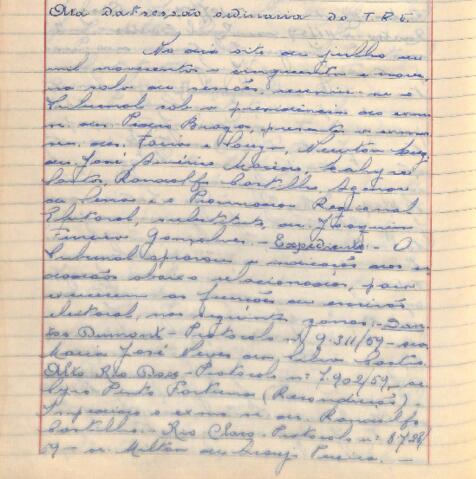 Ata da sessão ordinaria do T.R.E.
No dia oito de julho de
mil novecentos e cinquenta e nove,
na sala de sessões, reuniu-se o
Tribunal sob a presidencia do exmo
sr. des. Pedro Braga, presentes os exmos
srs. des. Faria e Souza, Newton Luz,
drs. José Américo Macedo,
Costa, Ranulfo Castilho,
de Sena e o Procurador Regional
Eleitoral, substituto, dr. Joaquim
Ferreira Gonçalves. - Expediente: - O
Tribunal aprovou a indicação dos
abaixo relacionados, para
exercerem as funções de escrivão
eleitoral, nas seguintes zonas: - San-
tos Dumont - Protocolo nº 9.311/59 - sra.
Maria José Neves da Silva Castro.
Alto Rio Doce - Protocolo nº 7.902/59, sr.
Pinto Fortuna (Recondução)
Impedido o exmo sr. dr. Ranulfo
Castilho. - Rio Claro - Protocolo nº 8.728/
59 - sr. Milton de Araujo Pereira. -